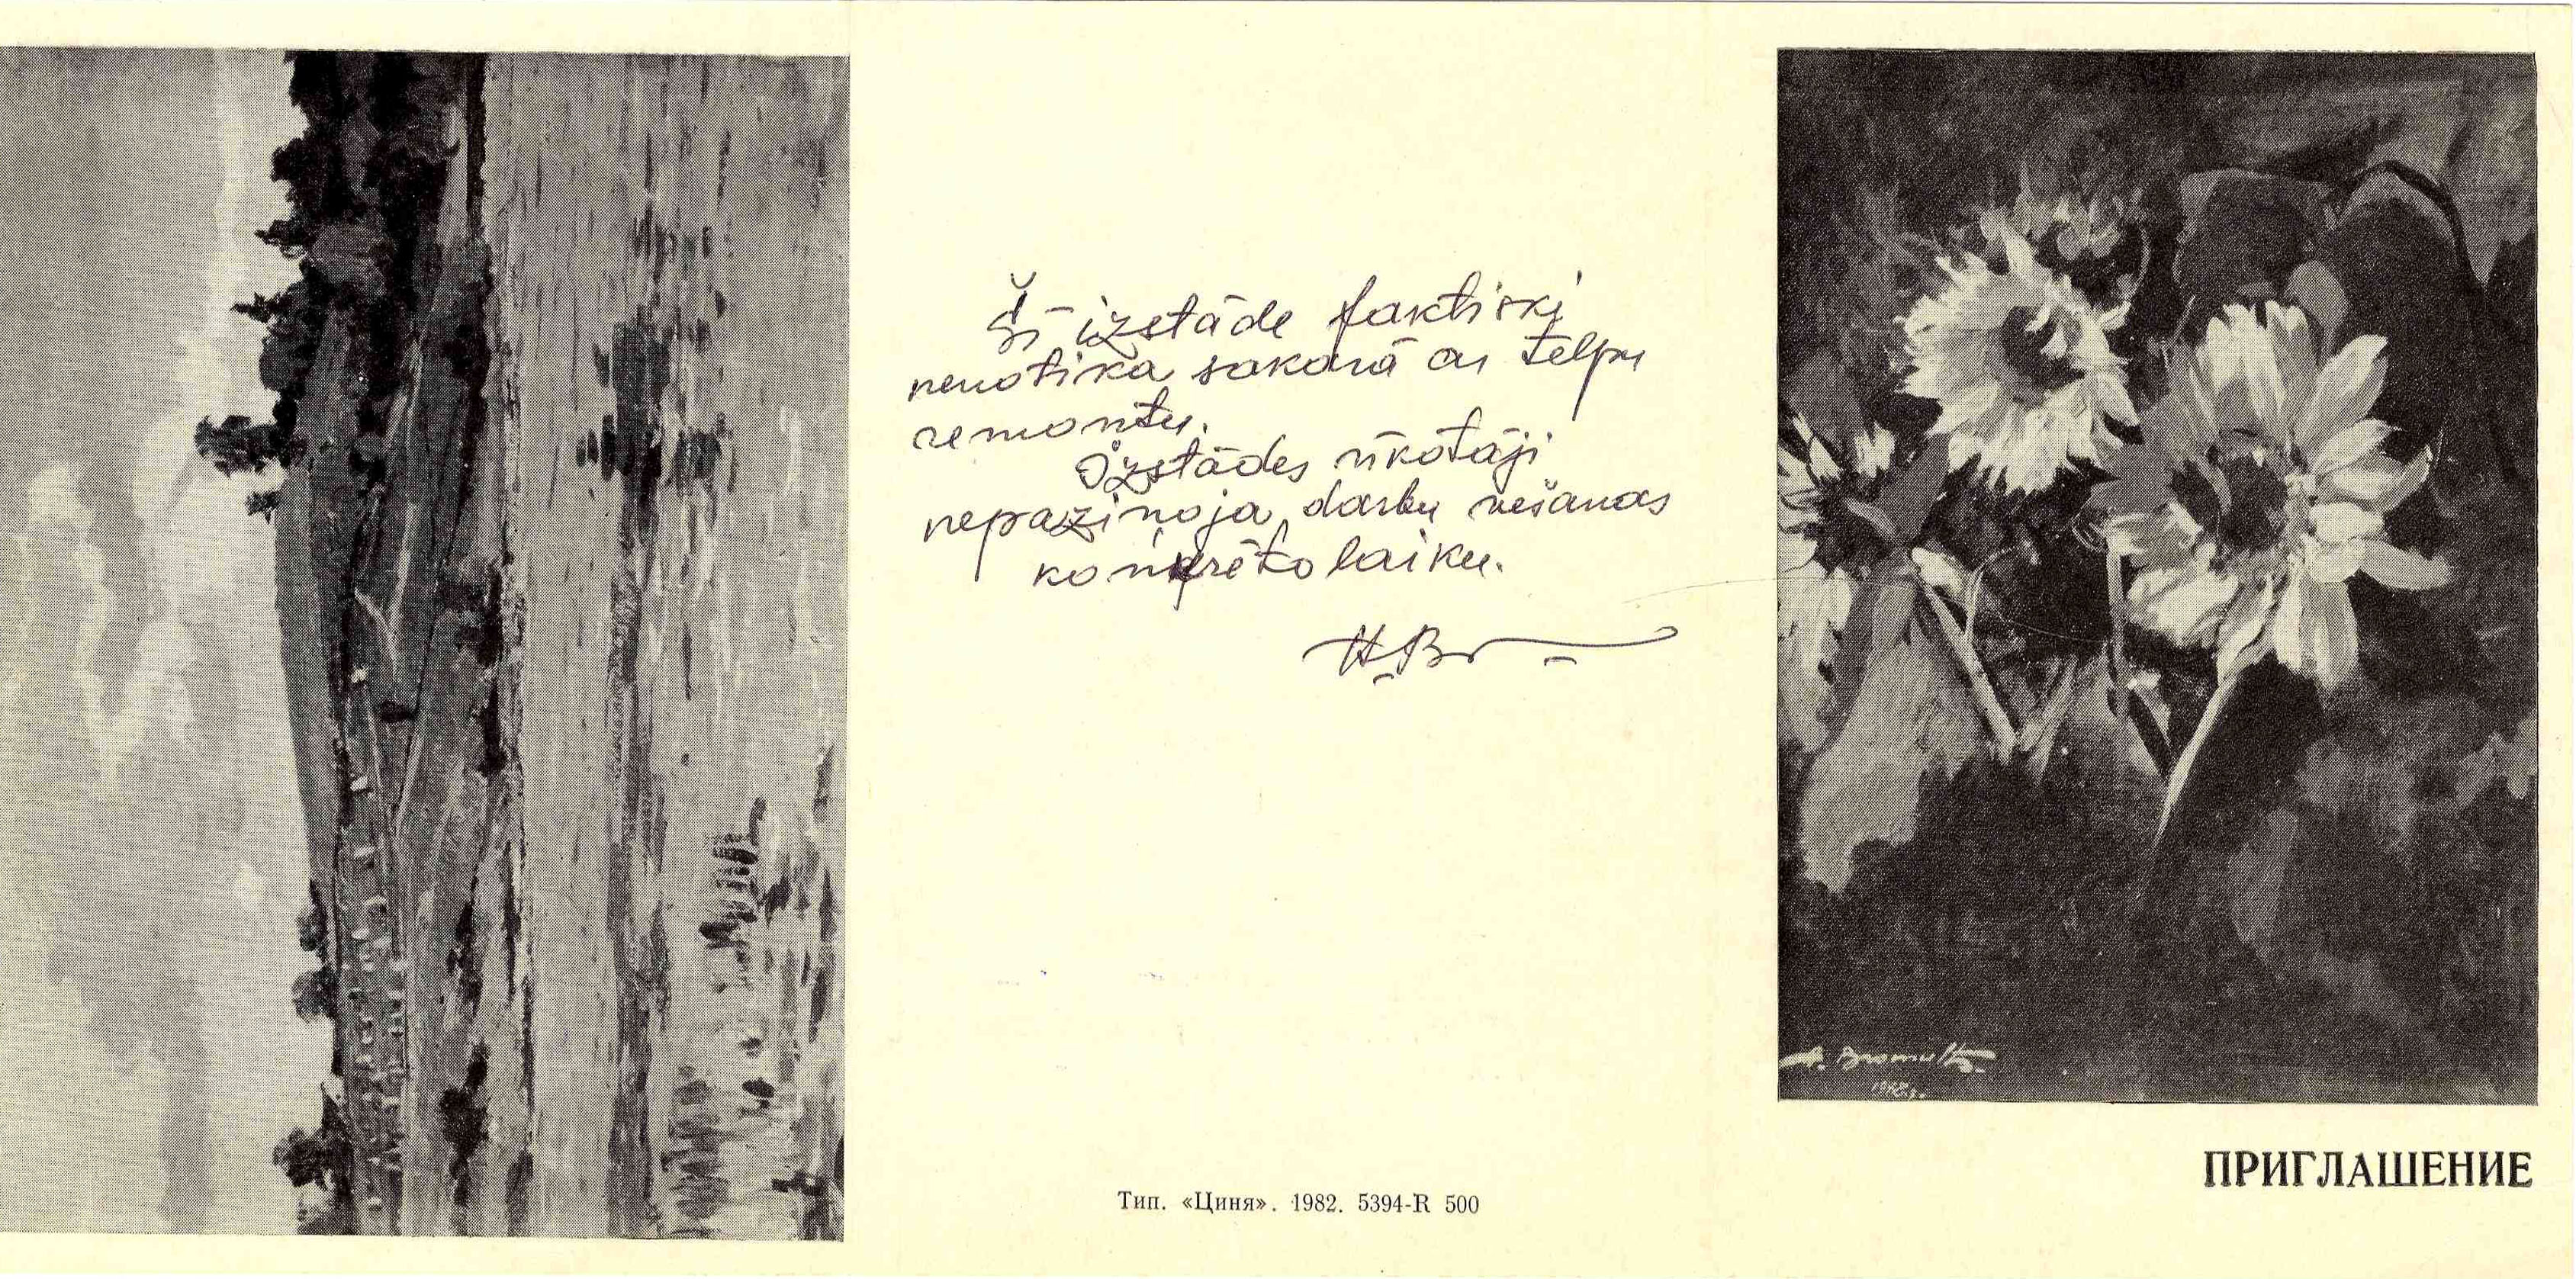 Šī izstāde faktiski
nenotika sakarā ar telpu
remontu.
Izstādes rīkotāji
nepaziņoja darbu vešanas
konkrēto laiku.
Тип. «Циня». 1982. 5394-R 500
A. Bromults.
ПРИГЛАШЕНИЕ